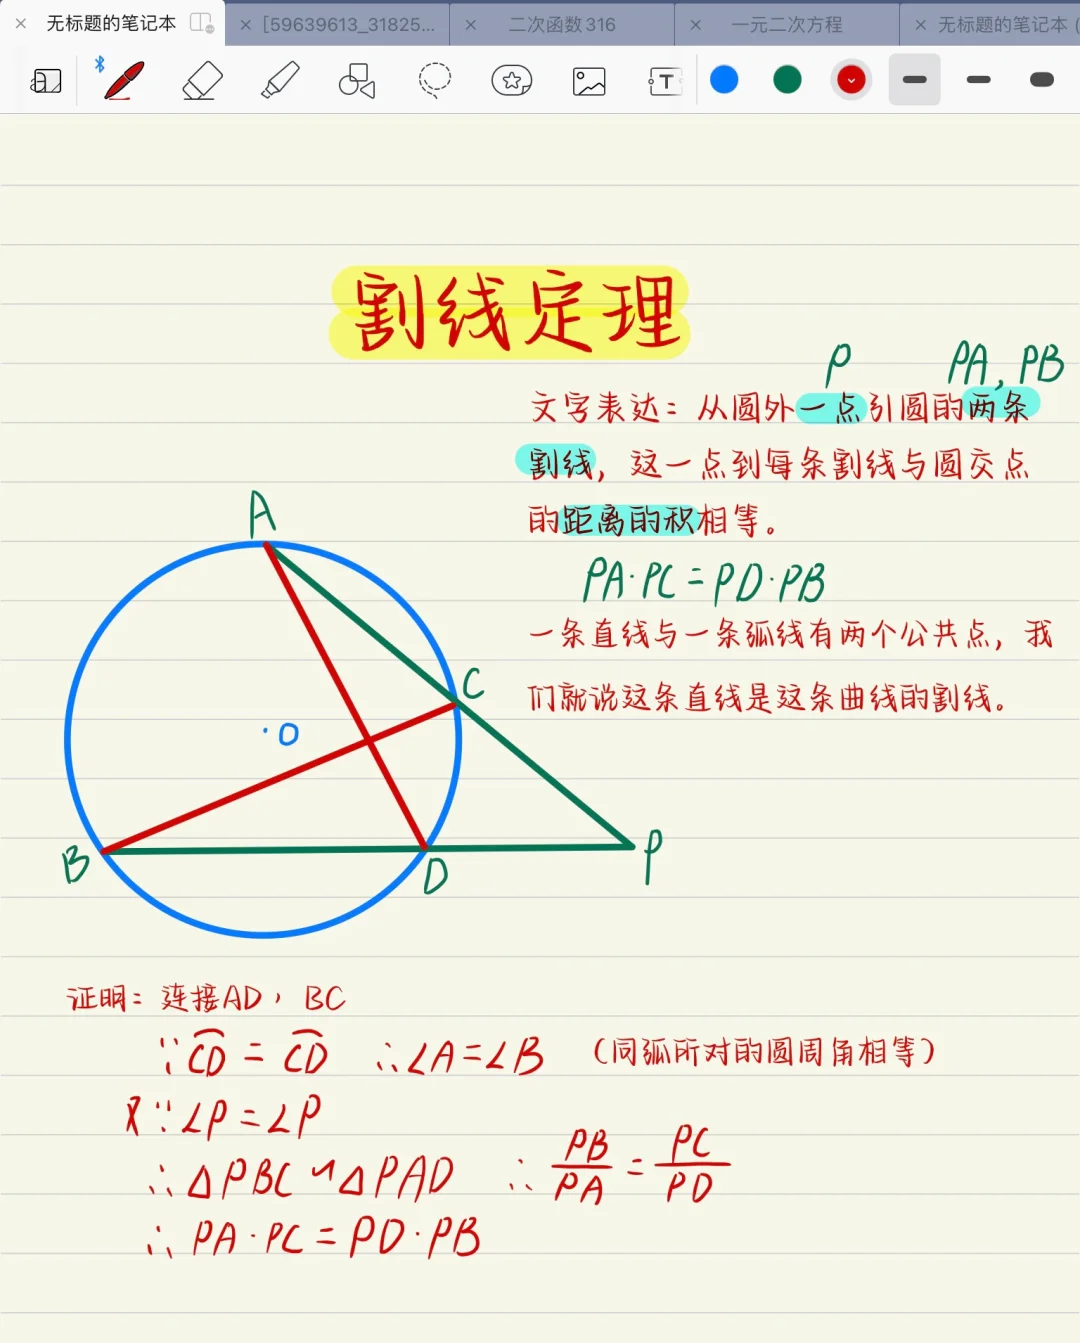 无标题的笔记本
[59639613_31825...
二次函数316
一元二次方程
无标题的笔记本 (
T
割线定理
P PA, PB
文字表达：从圆外一点引圆的两条
割线，这一点到每条割线与圆交点
的距离的积相等。
PA·PC=PD·PB
一条直线与一条弧线有两个公共点，我
们就说这条直线是这条曲线的割线。
A
C
·O
B
D
P
证明：连接AD，BC
∵C͡D = C͡D ∴∠A=∠B （同弧所对的圆周角相等）
又∵∠P=∠P
∴△PBC∽△PAD ∴PB/PA=PC/PD
∴PA·PC=PD·PB